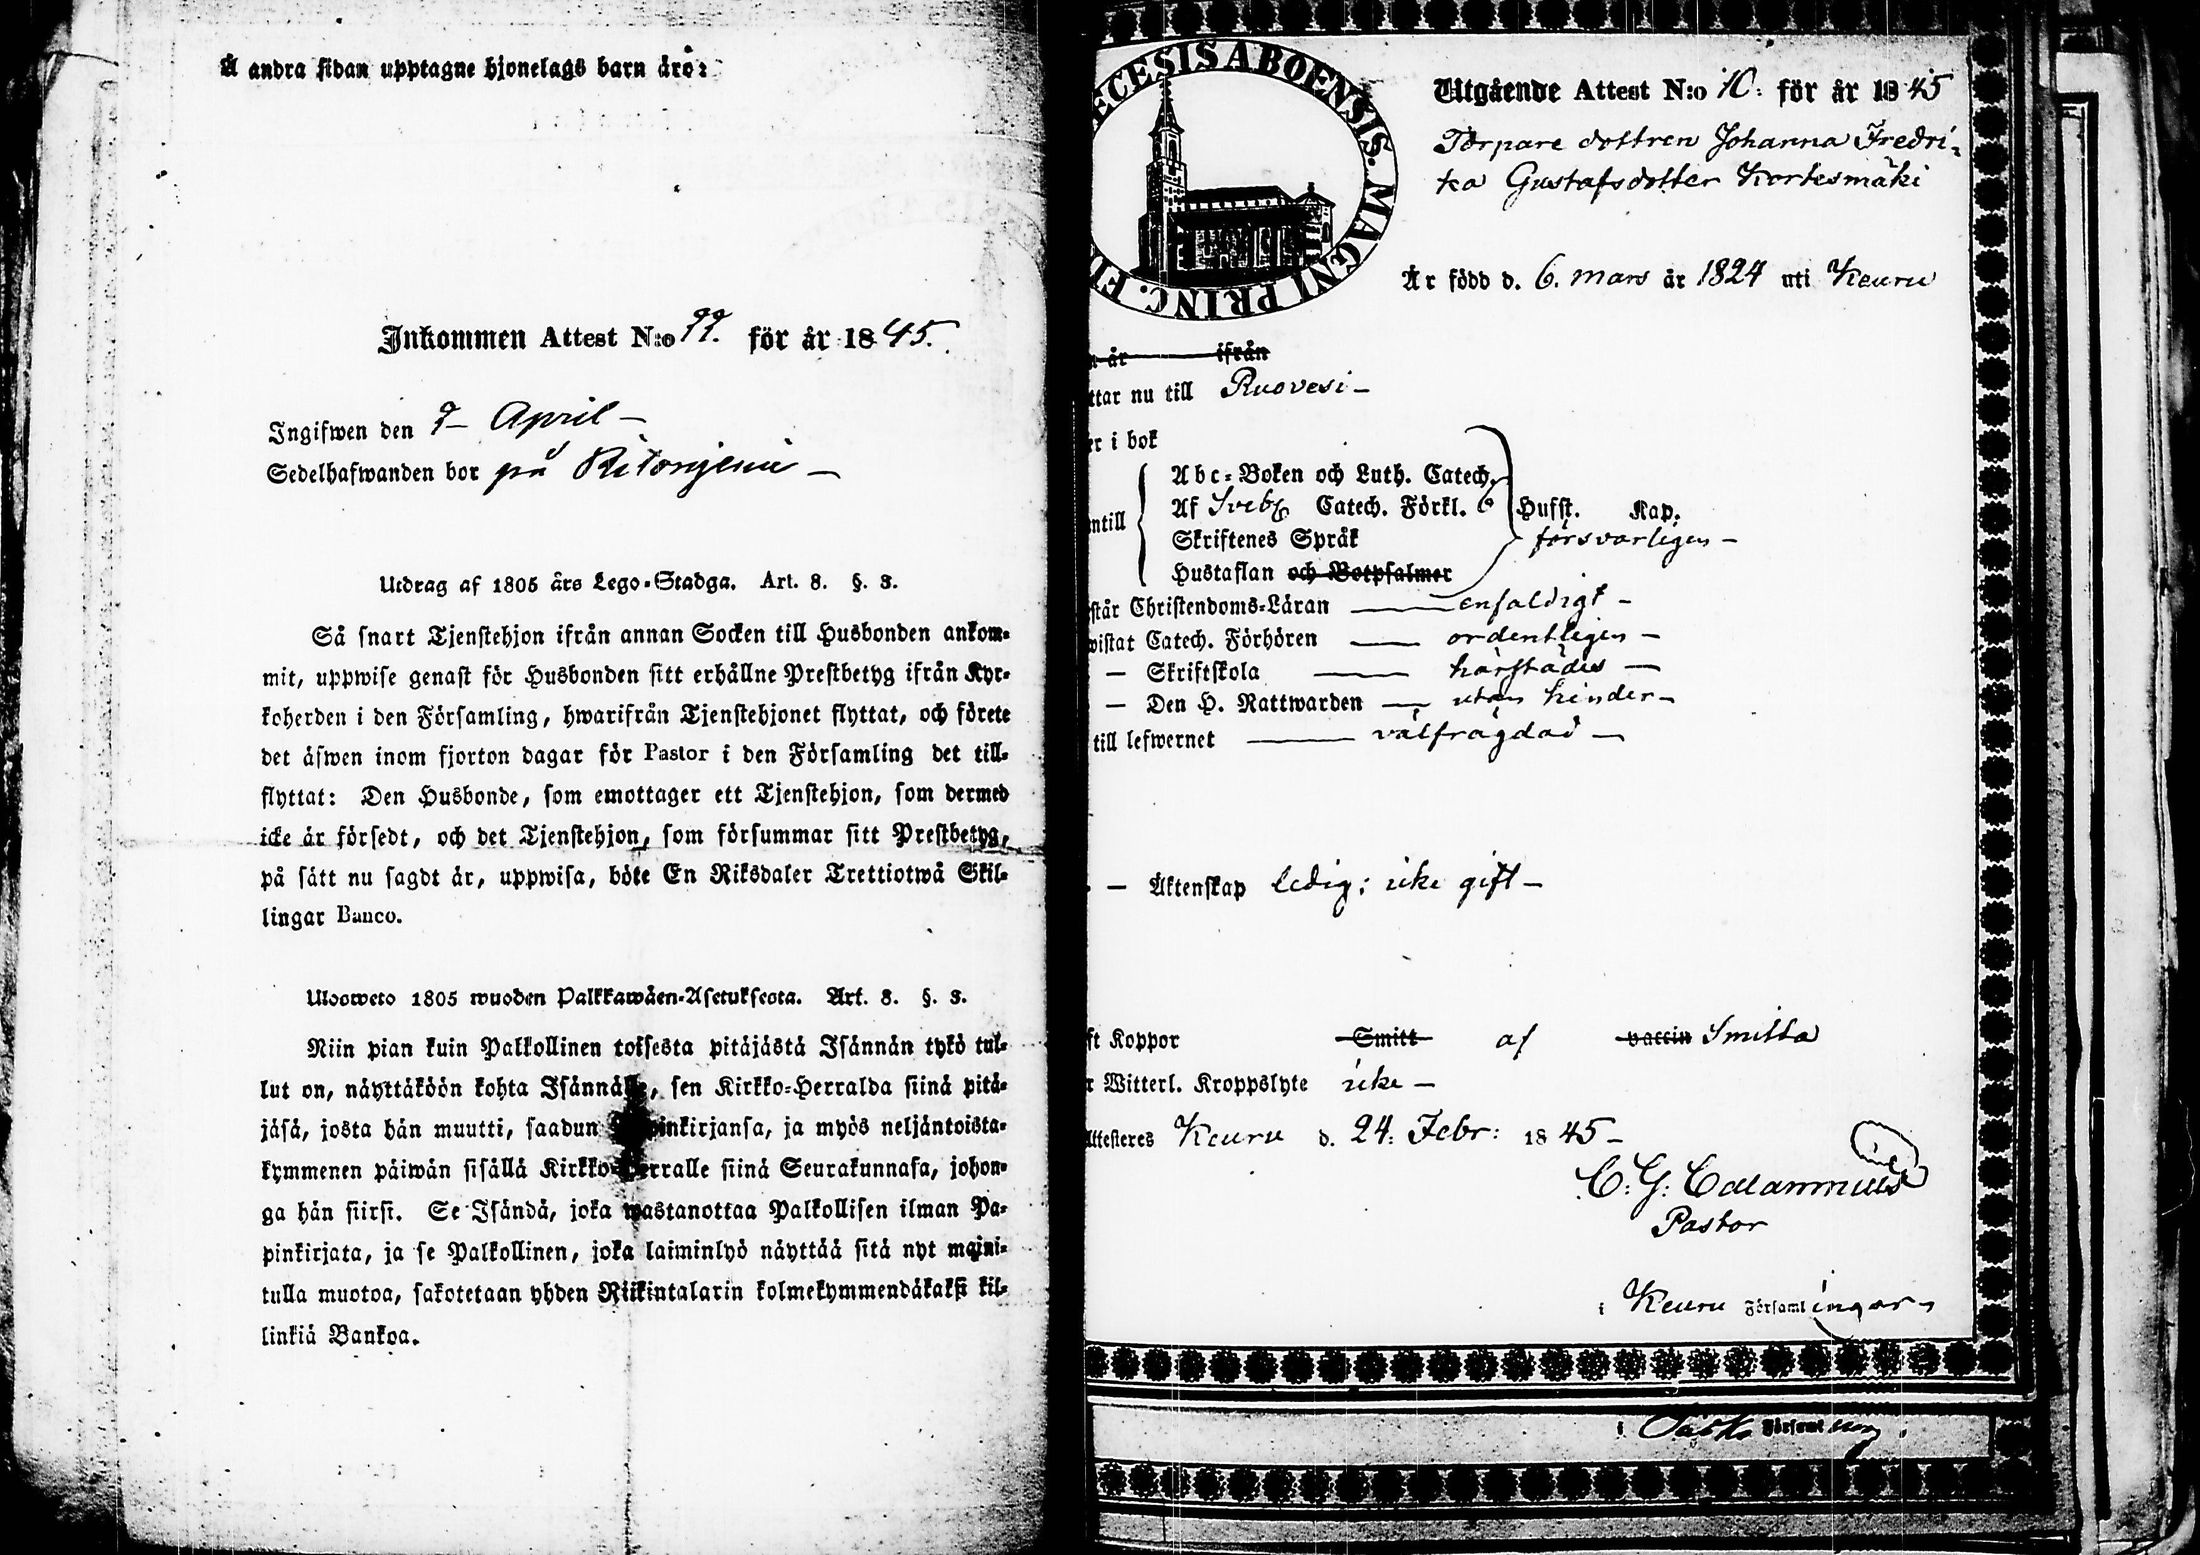 Å andra sidan upptagne hjonelags barn äro:
Inkommen Attest N:o 99. för år 1845.
Ingifwen den 9 April –
Sedelhafwanden bor på
Utdrag af 1805 års Lego-Stadga. Art. 8. §. 3.
Så snart Tjenstehjon ifrån annan Socken till Husbonden ankom-
mit, uppwise genast för Husbonden sitt erhållne Prestbetyg ifrån Kyr-
koherden i den Församling, hwarifrån Tjenstehjonet flyttat, och förete
det äfwen inom fjorton dagar för Pastor i den Församling det till-
flyttat: Den Husbonde, som emottager ett Tjenstehjon, som dermed
icke är försedt, och det Tjenstehjon, som försummar sitt Prestbetyg,
på sätt nu sagdt är, uppwisa, böte En Riksdaler Trettiotwå Skil-
lingar Banco.
Ulosweto 1805 wuoden Palkkawäen-Asetuksesta. Art. 8. §. 3.
Niin pian kuin Palkollinen toisesta pitäjästä Isännän tykö tul-
lut on, näyttäköön kohta Isännälle, sen Kirkko-Herralda siinä pitä-
jäsä, josta hän muutti, saadun Papinkirjansa, ja myös neljäntoista-
kymmenen päiwän sisällä Kirkko-Herralle siinä Seurakunnasa, johon-
ga hän siirsi. Se Isändä, joka wastanottaa Palkollisen ilman Pa-
pinkirjata, ja se Palkollinen, joka laiminlyö näyttää sitä nyt maini-
tulla muotoa, sakotetaan yhden Riikintalarin kolmekymmendäkaksi kil-
linkiä Bankoa.
ECESIS ABOENSIS. MAGNI PRINC. FI
Utgående Attest N:o 10. för år 1845
Torpare dottren Johanna Fredri-
ka Gustafsdotter Kortesmäki
Är född d. 6. mars år 1824 uti Keuru
år ifrån
ttar nu till Ruovesi –
er i bok
Abc-Boken och Luth. Catech.
ntill Af Sveb. Catech. Förkl. 6 Hufst. Kap.
Skriftenes Språk försvarligen –
Hustaflan och Botpsalmer
står Christendoms-Läran enfaldigt –
wistat Catech. Förhören ordentligen –
– Skriftskola härstädes –
– Den H. Nattwarden utan hinder –
till lefwernet välfrägdad –
– Äktenskap ledig; icke gift –
ft Koppor Smitt af vaccin Smitta
r Witterl. Kroppslyte icke –
Attesteres Keuru d. 24. Febr: 1845 –
C. G. Calamnius
Pastor
i Keuru Församlingar
i Församling